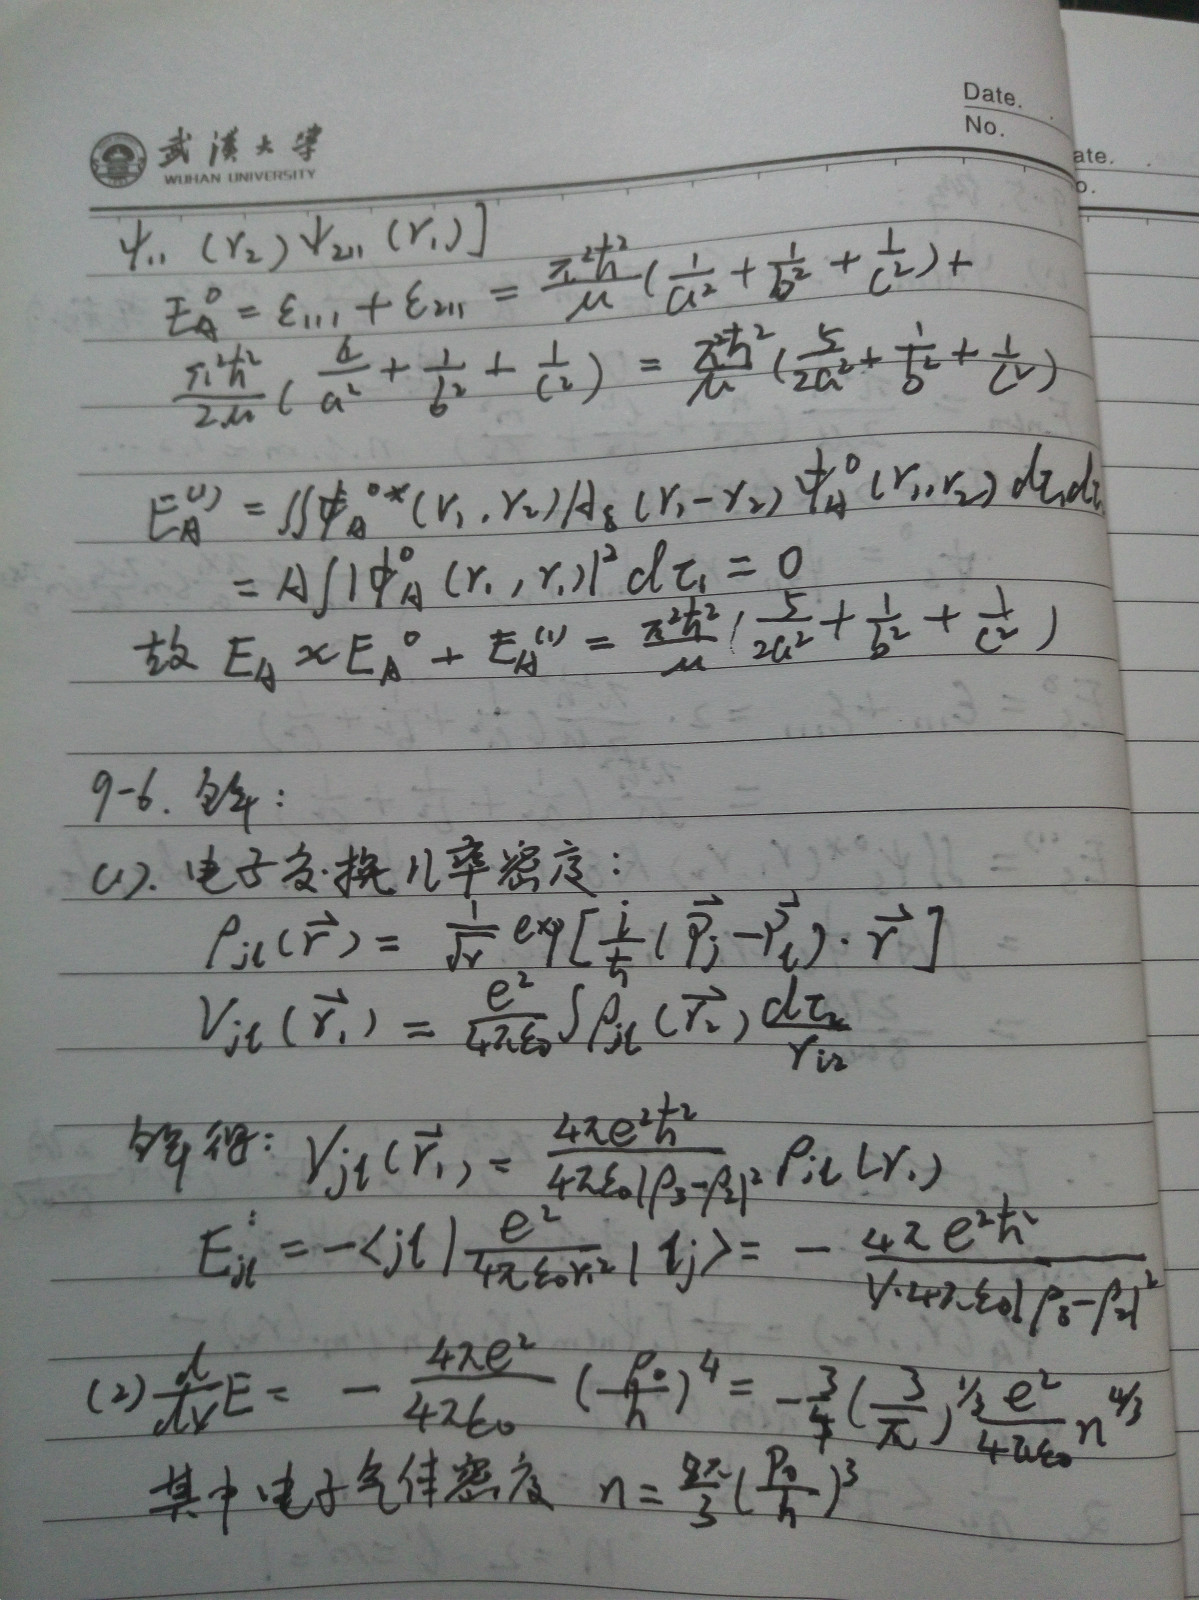 Date.
No.
ate.
o.
武漢大学
WUHAN UNIVERSITY
ψ₁₁ (r₂) ψ₂₁₁ (r₁)]
E_A^0 = ε₁₁₁ + ε₂₁₁ = π²ħ²/μ (1/a² + 1/b² + 1/c²) +
π²ħ²/2μ ( /a² + 1/b² + 1/c²) = π²ħ²/μ (5/2a² + 1/b² + 1/c²)
E_A^(1) = ∬ψ_A^0* (r₁, r₂) A δ (r₁-r₂) ψ_A^0 (r₁, r₂) dτ₁dτ
= A∫|ψ_A^0 (r₁, r₁)|² dτ₁ = 0
故 E_A ≈ E_A^0 + E_A^(1) = π²ħ²/μ (5/2a² + 1/b² + 1/c²)
9-6. 解:
(1). 电子交换几率密度:
ρ_jl(r⃗) = 1/√V exp[i/ħ (p⃗_j - p⃗_l)·r⃗]
V_jl(r⃗₁) = e²/4πε₀ ∫ρ_jl(r⃗₂) dτ₂/r₁₂
解得: V_jl(r⃗₁) = 4πe²ħ²/4πε₀|ρ₃-ρ₂|² ρ_jl(r₁)
E_jl = -<jl| e²/4πε₀r₁₂ |lj> = - 4πe²ħ²/V·4πε₀|ρ₈-ρ₂|²
(2) d/dV E = - 4πe²/4πε₀ (ρ₀/h)⁴ = -3/4 (3/π)^1/3 e²/4πε₀ n^4/3
其中电子气体密度 n = 8π/3 (P₀/h)³